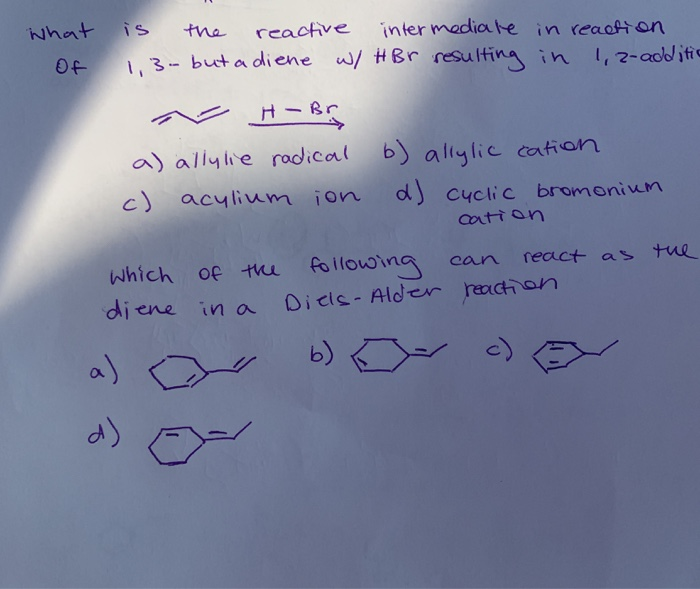 What is the reactive intermediate in reaction
Of 1,3-butadiene w/ HBr resulting in 1,2-additi
H-Br
a) allylic radical b) allylic cation
c) acylium ion d) cyclic bromonium
cation
which of the following can react as the
diene in a Diels-Alder reaction
a) b) c)
d)